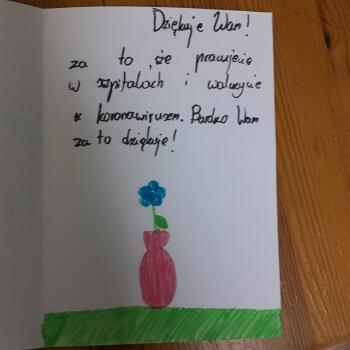 Dziękuje Wam!
za to, że pracujecie
w szpitalach i walczycie
z koronawirusem. Bardzo Wam
za to dziękuje!